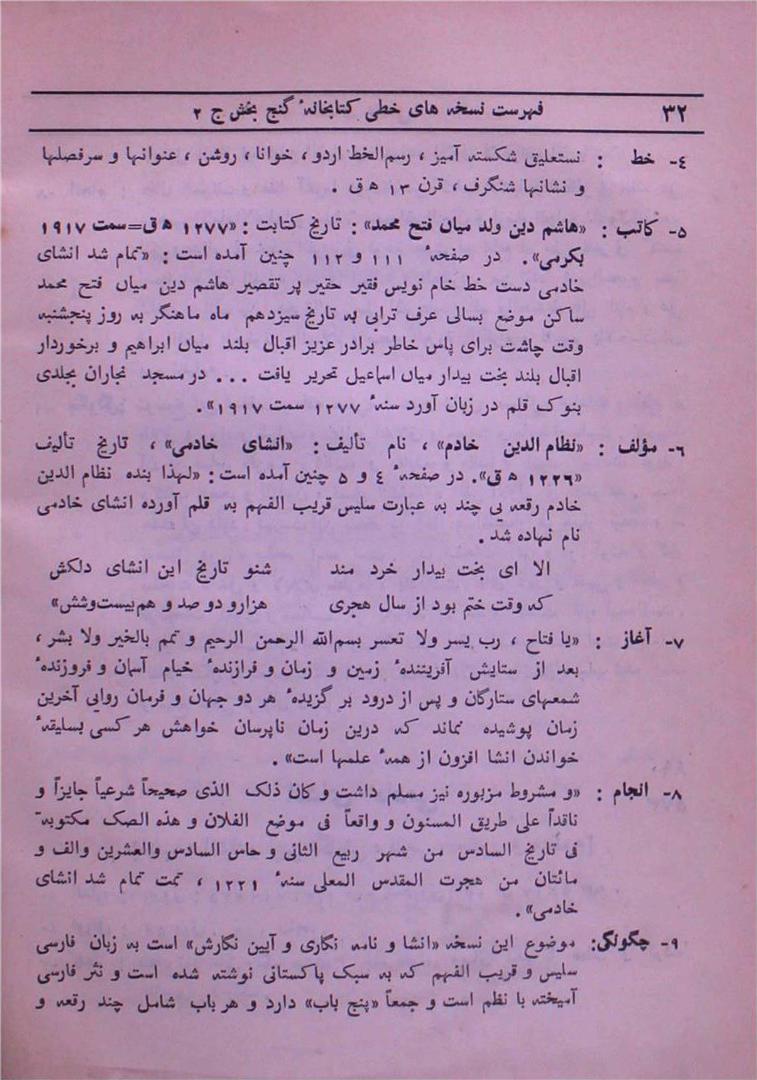 ۳۲ فهرست نسخه های خطی کتابخانهٔ گنج بخش ج ۲
۴- خط : نستعلیق شکسته آمیز ، رسم‌الخط اردو ، خوانا ، روشن ، عنوانها و سرفصلها
و نشانها شنگرف ، قرن ۱۳ ه ق .
۵- کاتب : «هاشم دین ولد میان فتح محمد» : تاریخ کتابت : «۱۲۷۷ ه ق=سمت ۱۹۱۷
بکرمی» . در صفحهٔ ۱۱۱ و ۱۱۲ چنین آمده است : «تمام شد انشای
خادمی دست خط خام نویس فقیر حقیر پر تقصیر هاشم دین میاں فتح محمد
ساکن موضع بسالی عرف ترابی به تاریخ سیزدهم ماه ماهنگر به روز پنجشنبه
وقت چاشت برای پاس خاطر برادر عزیز اقبال بلند میاں ابراهیم و برخوردار
اقبال بلند بخت بیدار میاں اسماعیل تحریر یافت ... در مسجد نجاران بجلدی
بنوک قلم در زبان آورد سنهٔ ۱۲۷۷ سمت ۱۹۱۷» .
۶- مؤلف : «نظام الدین خادم» ، نام تألیف : «انشای خادمی» ، تاریخ تألیف
«۱۲۲۶ ه ق» . در صفحهٔ ۴ و ۵ چنین آمده است : «لهذا بنده نظام الدین
خادم رقعه یی چند به عبارت سلیس قریب الفهم به قلم آورده انشای خادمی
نام نهاده شد .
الا ای بخت بیدار خرد مند شنو تاریخ این انشای دلکش
که وقت ختم بود از سال هجری هزارو دو صد و هم بیست‌وشش»
۷- آغاز : «یا فتاح ، رب یسر ولا تعسر بسم‌الله الرحمن الرحیم و تمم بالخیر ولا بشر ،
بعد از ستایش آفرینندهٔ زمین و زمان و فرازندهٔ خیام آسمان و فروزندهٔ
شمعهای ستارگان و پس از درود بر گزیدهٔ هر دو جهان و فرمان روایی آخرین
زمان پوشیده نماند که درین زمان ناپرسان خواهش هر کسی بسلیقهٔ
خواندن انشا افزون از همهٔ علمها است» .
۸- انجام : «و مشروط مزبوره نیز مسلم داشت و کان ذلک الذی صحیحاً شرعیاً جایزاً و
ناقداً علی طریق المسنون و واقعاً فی موضع الفلان و هذه الصک مکتوبة
فی تاریخ السادس من شهر ربیع الثانی و حاس السادس والعشرین والف و
مائتان من هجرت المقدس المعلی سنهٔ ۱۲۲۶ ، تمت تمام شد انشای
خادمی» .
۹- چگونگی: موضوع این نسخه «انشا و نامه نگاری و آیین نگارش» است به زبان فارسی
سلیس و قریب الفهم که به سبک پاکستانی نوشته شده است و نثر فارسی
آمیخته با نظم است و جمعاً «پنج باب» دارد و هر باب شامل چند رقعه و